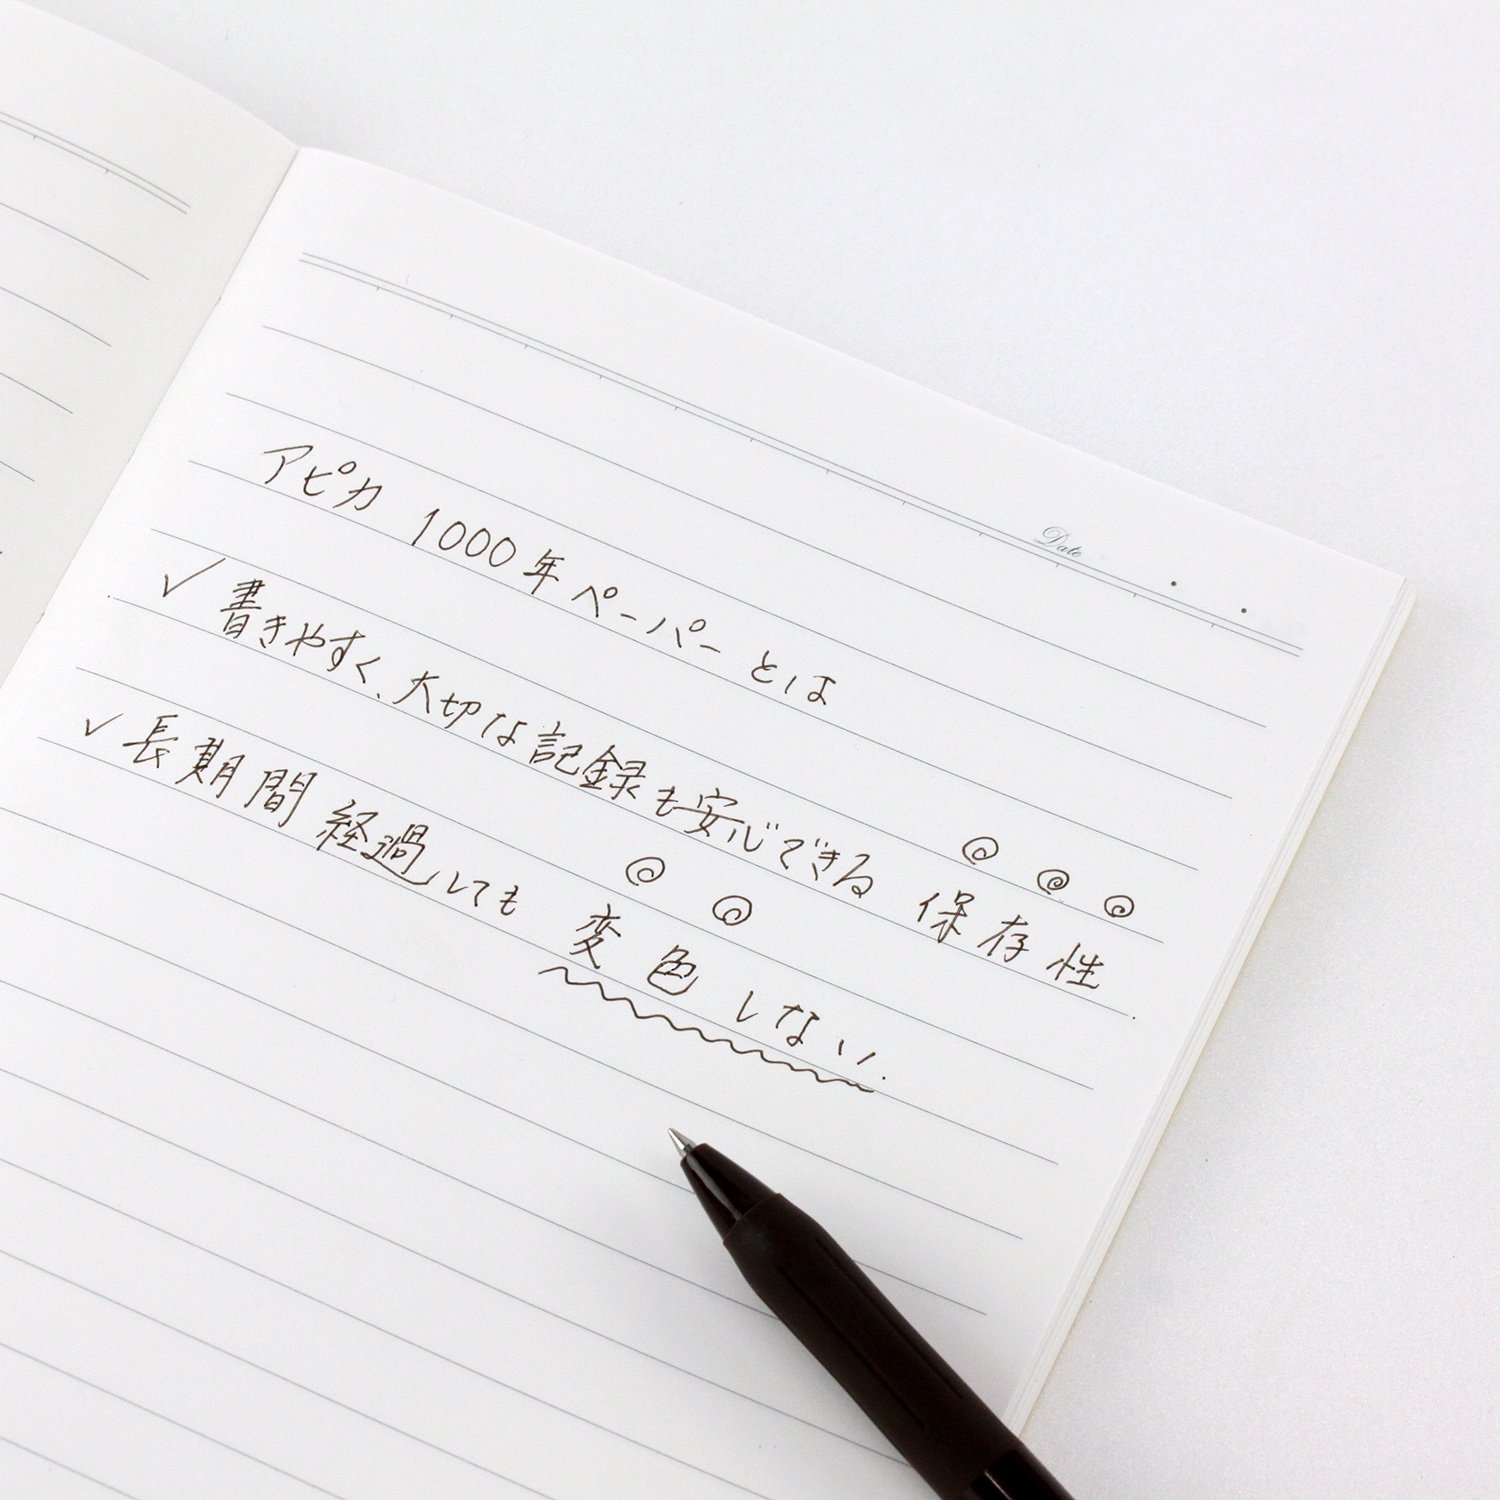 Date
アピカ 1000年ペーパーとは
✓書きやすく、大切な記録も安心できる 保存性.
✓長期間経過しても 変色しない.